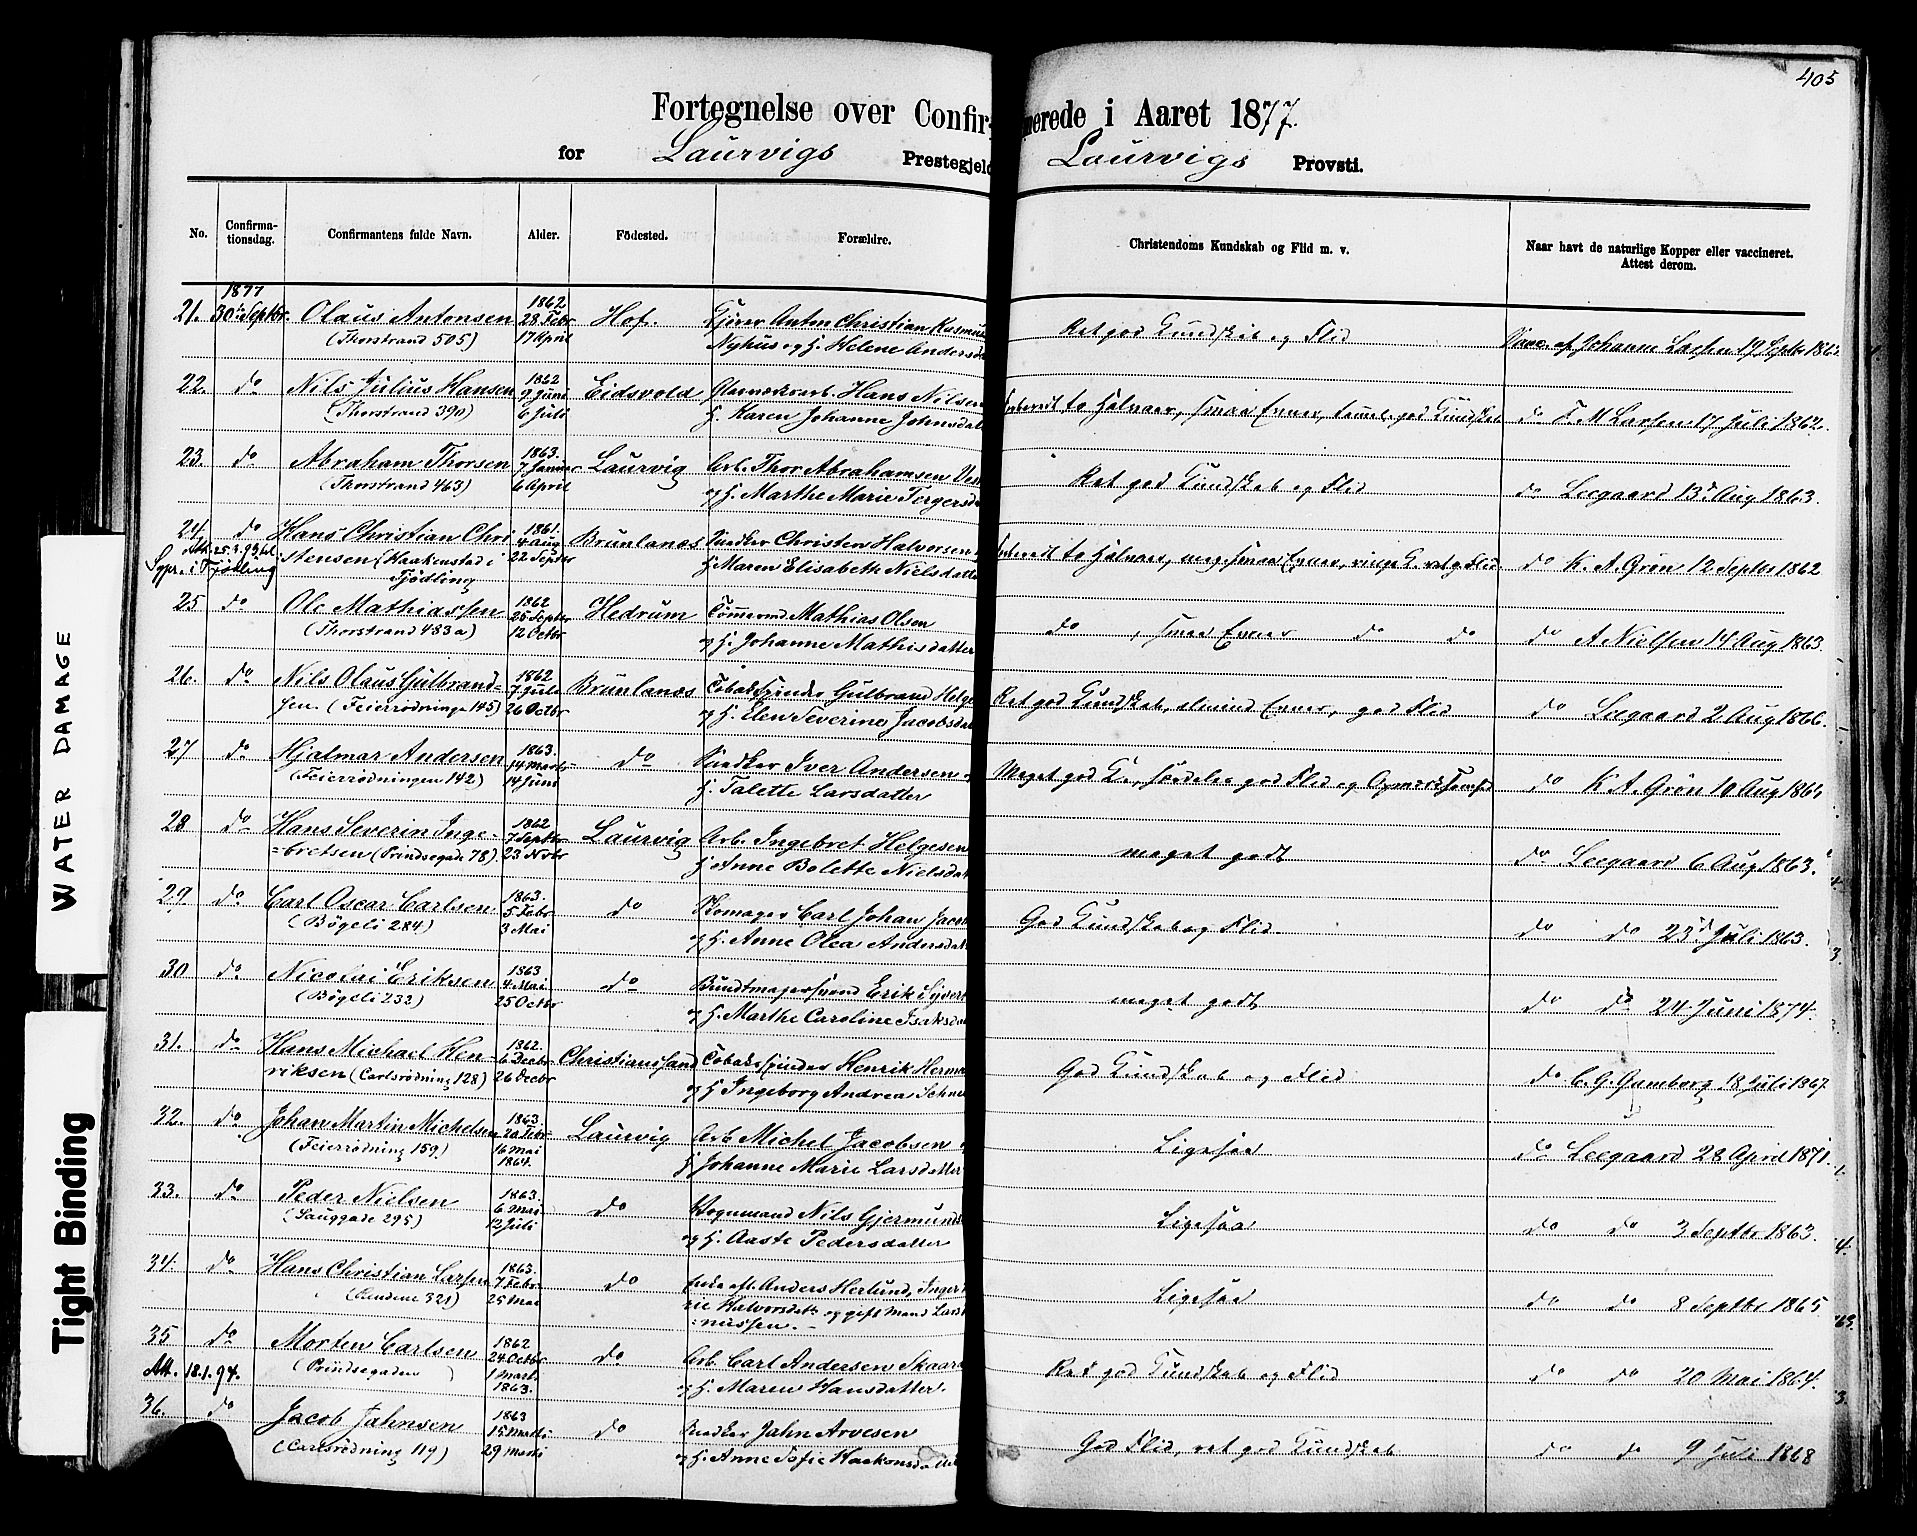 405
Fortegnelse over Confirmerede i Aaret 1877.
for Laurvigs Prestegjeld Laurvigs Provsti.
No. Confirma-tionsdag. Confirmantens fulde Navn. Alder. Fødested. Forældre. Christendoms Kundskab og Flid m. v. Naar havt de naturlige Kopper eller vaccineret. Attest derom.
1877 1862
21. 30te Septbr. Olaus Antonsen 28 Febr Hof. Anton Christian Rasmus Ret god Kundskab og Flid Vacc. af Johanne Larsen 19 Septbr 186
(Thorstrand 505) 17 April Nyhus og H. Helene Andersda
22. do Nils Julius Hansen 1862 9 Juni Eidsvold Glasværksarb. Hans Nilsen to Halvaar, smaa Evner, god Kundskab do F. M. Larsen 17 Juli 1862.
(Thorstrand 390) 6 Juli H. Karen Johanne Johnsdat
23. do Abraham Thorsen 1863. 7 Januar Laurvig Arb. Thor Abrahamsen Ves Ret god Kundskab og Flid do Leegaard 13d Aug 1863.
(Thorstrand 463) 6 April og H. Marthe Marie Torgersda
24. do Hans Christian Chri 1861. 4 Aug Brunlanes Snedker Christen Halvorsen to Halvaar, meg. smaa Evner, ringe K. ret g. Flid do K. A. Grøn 12 Septbr 1862
Att. 25.3.93 stensen (Haakenstad i 22 Septbr H. Maren Elisabeth Nielsdatter
i Tjødling Tjødling
25 do Ole Mathiassen 1862 25 Septbr Hedrum Tømmermd Mathias Olsen do, smaa Evner do do do A Nielsen 14 Aug 1863.
(Thorstrand 483a) 12 Octbr og H. Johanne Mathisdatter
26. do Nils Olaus Gulbrand- 1862 7 Juli Brunlanes Tobakspinder Gulbrand Helge Ret god Kundskab, Evner, god Flid do Leegaard 2 Aug 1866.
sen. (Feierrødninge 145) 26 Octbr og H. Elen Severine Jacobsda
27 do Hjalmar Andersen 1863. 14 Marts do Snedker Iver Andersen Meget god K., særdeles god Flid og Opmærksomhed do K A. Grøn 10 Aug 186
(Feierrødningen 142) 14 Juni H. Talette Larsdatter
28 do Hans Severin Inge- 1862 7 Septbr Laurvig Arb. Ingebret Helgesen meget godt do Leegaard 6 Aug 1863.
=bretsen (Prindsegade 78) 23 Novbr H Anne Bolette Nielsdat
29 do Carl Oscar Carlsen 1863. 5 Febr do Skomager Carl Johan Jacob God Kundskab og Flid do do 23d Juli 1863.
(Bøgeli 284) 3 Mai og H. Anne Olea Andersda
30 do Nicolai Eriksen 1863 4 Mai do Bundtmagersvend Erik Syvert meget godt do do 24 Juni 1874.
(Bøgeli 232) 25 Octbr og H. Marthe Caroline Isaksda
31. do Hans Michael Hen- 1862. 6 Decbr Christianssand Tobakspinder Henrik Herma God Kundskab og Flid do C. G. Gumborg 18 Juli 1867
riksen (Carlsrødning 128) 26 Decbr og H Ingeborg Andrea Schne
32. do Johan Martin Michelsen 1863. 20 Febr Laurvig Arb Michel Jacobsen Ligesaa do Leegaard 28 April 1871.
(Feierrødning 159) 16 Mai 1864. H Johanne Marie Larsdatter
33. do Peder Nielsen 1863. 6 Mai do Vognmand Nils Gjermunds Ligesaa do do 3 Septbr 1863.
(Sauggade 295) 12 Juli og H. Aaste Pedersdatter
34. do Hans Christian Larsen 1863. 7 Febr do Enke eft. Anders Herlund, Inger Ligesaa do do 8 Septbr 1865
321) 25 Mai Halvorsdatr og gift Mand Lars
=nussen.
35 do Morten Carlsen 1862 24 Octbr do Arb. Carl Andersen Skaara Ret god Kundskab og Flid do do 20 Mai 1864.
Att. 18.1.94. (Prindsegaden) 1 Mart. 1863. og H. Maren Hansdatter.
36. do Jacob Jahnsen 1863 15 Marts do Snedker Jahn Arvesen God Flid, ret god Kundskab do do 9 Juli 1868
(Carlsrødning 119) 29 Marts og H. Anne Sofie Haakonsdatter
WATER DAMAGE
Tight Binding